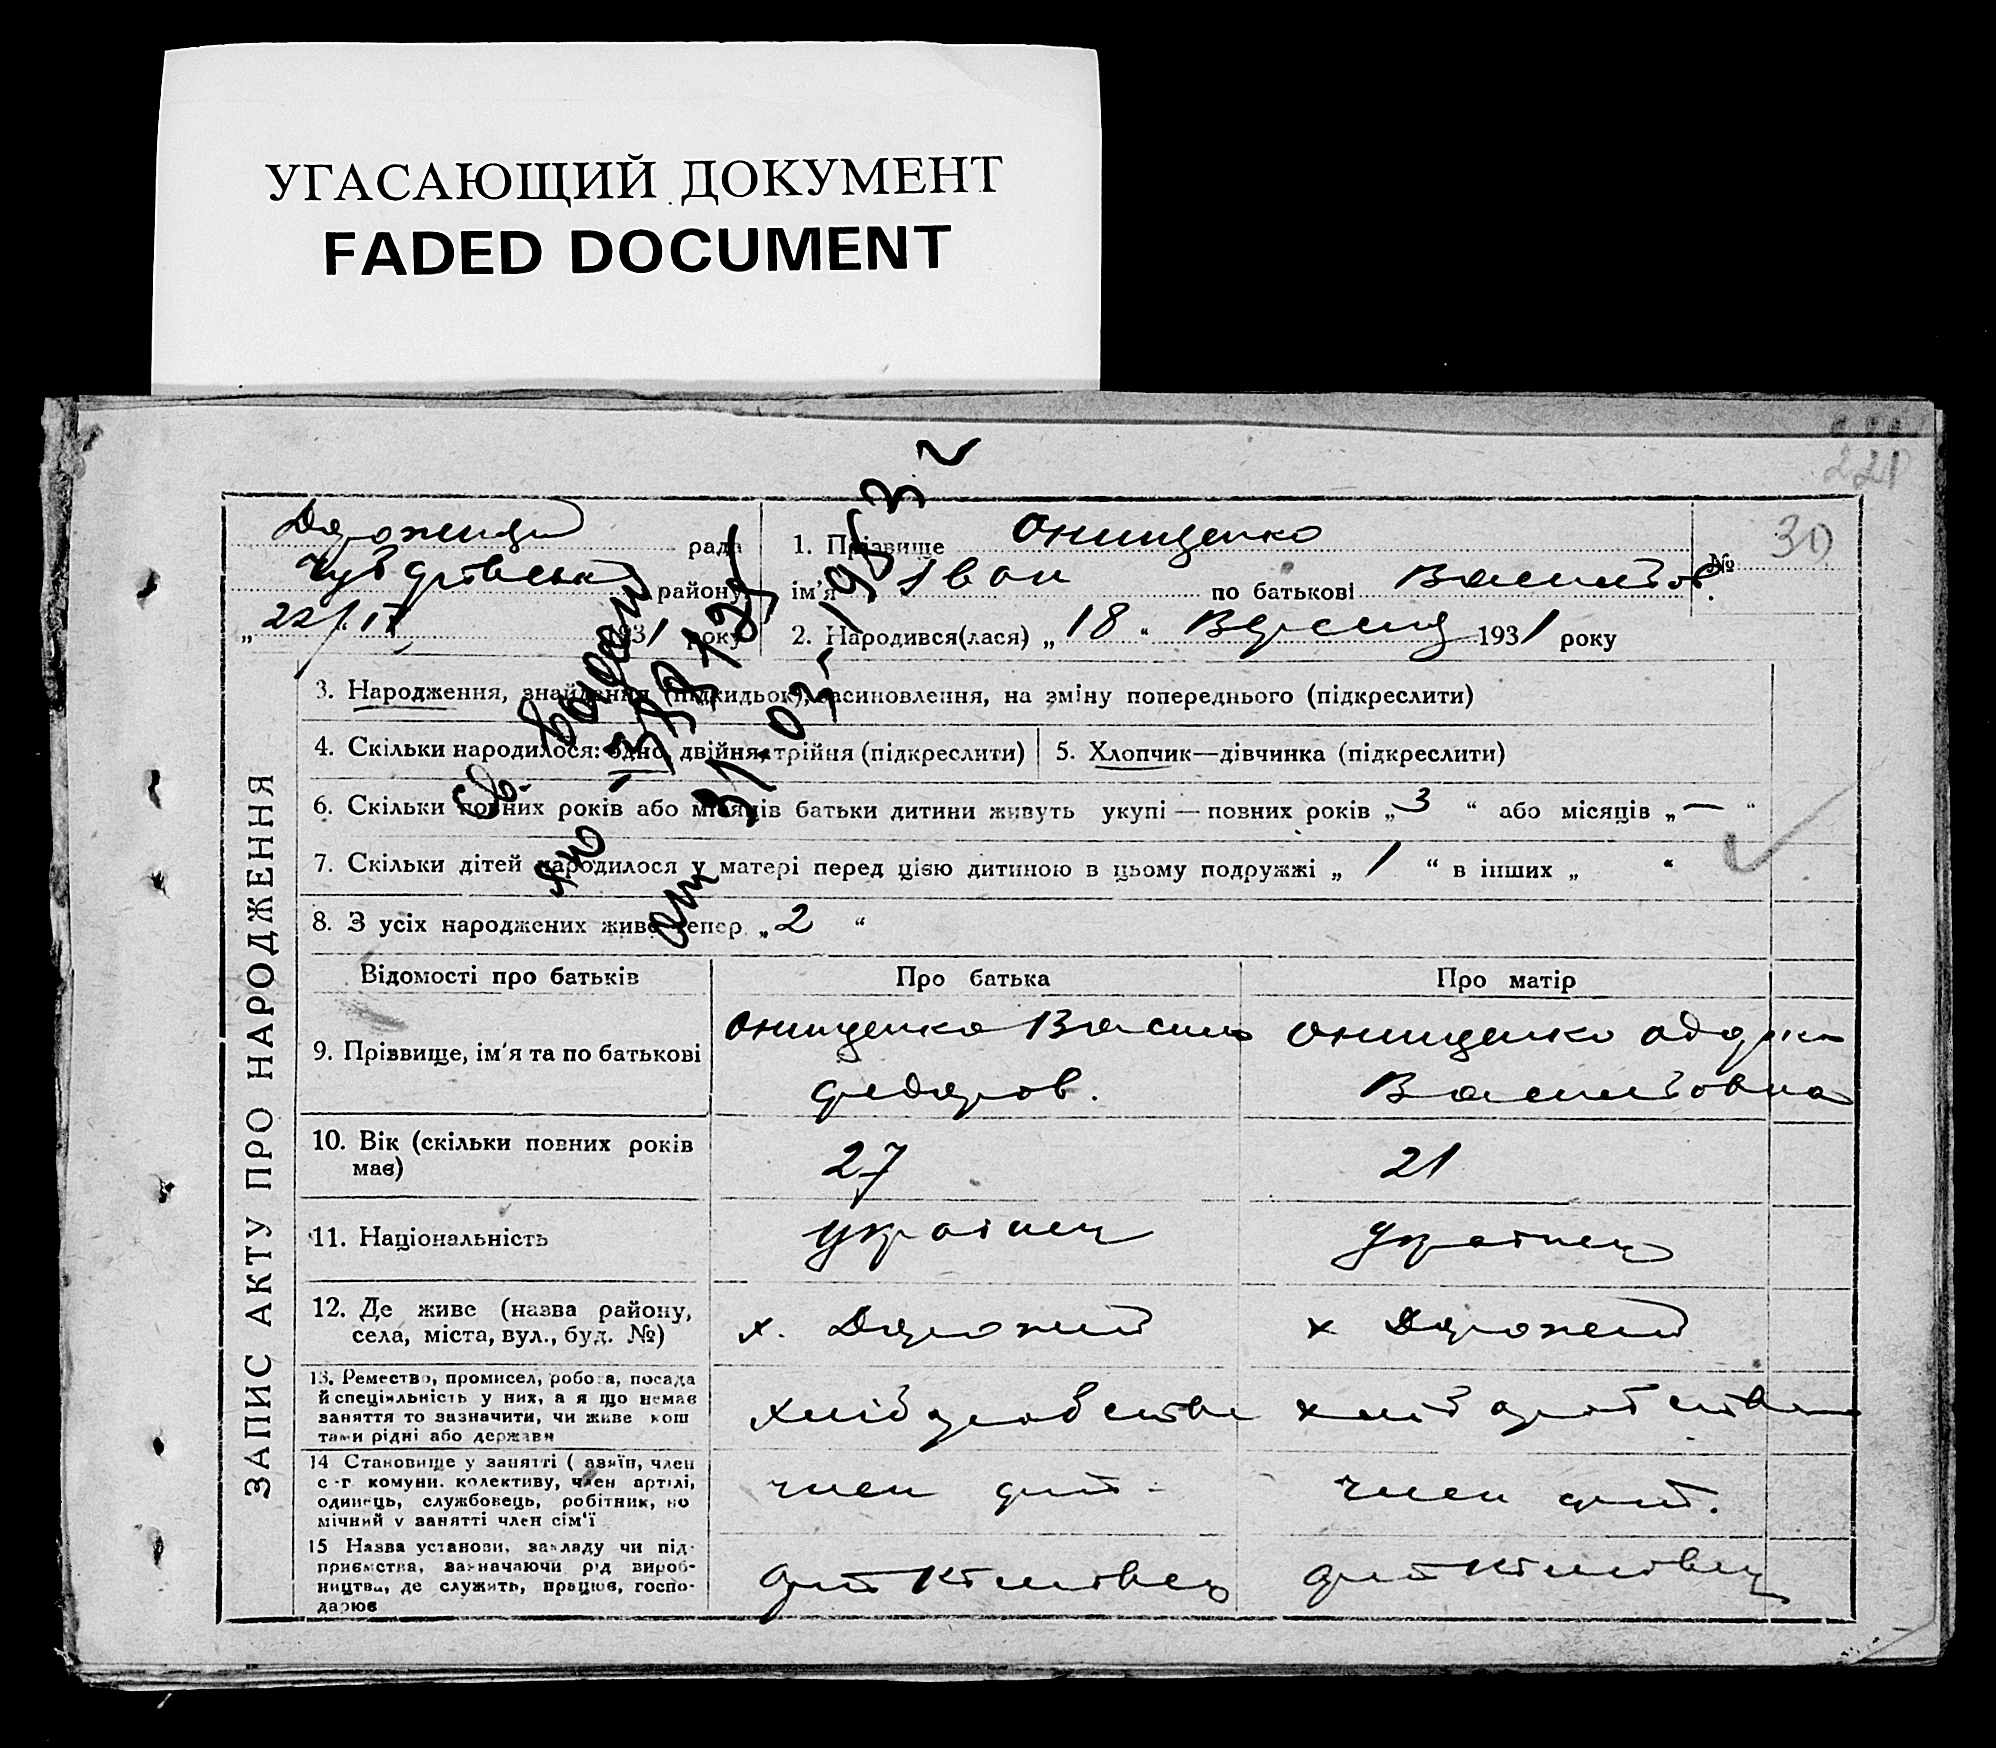 УГАСАЮЩИЙ ДОКУМЕНТ
FADED DOCUMENT
221
рада
району
„22/ ІХ 1931 року
1. Прізвище Онищенко
ім'я Іван по батькові Васильов.
№ 30
2. Народився(лася) „18“ Вересня 1931 року
ЗАПИС АКТУ ПРО НАРОДЖЕННЯ
3. Народження, знайдення (підкидьок), засиновлення, на зміну попереднього (підкреслити)
4. Скільки народилося: одно, двійня, трійня (підкреслити)
5. Хлопчик—дівчинка (підкреслити)
6. Скільки повних років або місяців батьки дитини живуть укупі — повних років „3“ або місяців „—“
7. Скільки дітей народилося у матері перед цією дитиною в цьому подружжі „1“ в інших „ “
8. З усіх народжених живе тепер „2“
Відомості про батьків
Про батька
Про матір
9. Прізвище, ім'я та по батькові
Онищенко Василь
Федоров.
Онищенко
Васильовна
10. Вік (скільки повних років
має)
27
21
11. Національність
українец
українец
12. Де живе (назва району,
села, міста, вул., буд. №)
х.
х
13. Ремество, промисел, робота, посада
й спеціяльність у них, а я що немає
заняття то зазначити, чи живе кош
тами рідні або держави
хліборобство
хліборобство
14 Становище у занятті (
с-г. комуни. колективу, член артілі,
одинець, службовець, робітник,
мічний у занятті член сім'ї
член
член
15 Назва установи, закладу чи під-
приємства, зазначаючи рід вироб-
ництва, де служить, працює, госпо-
дарює